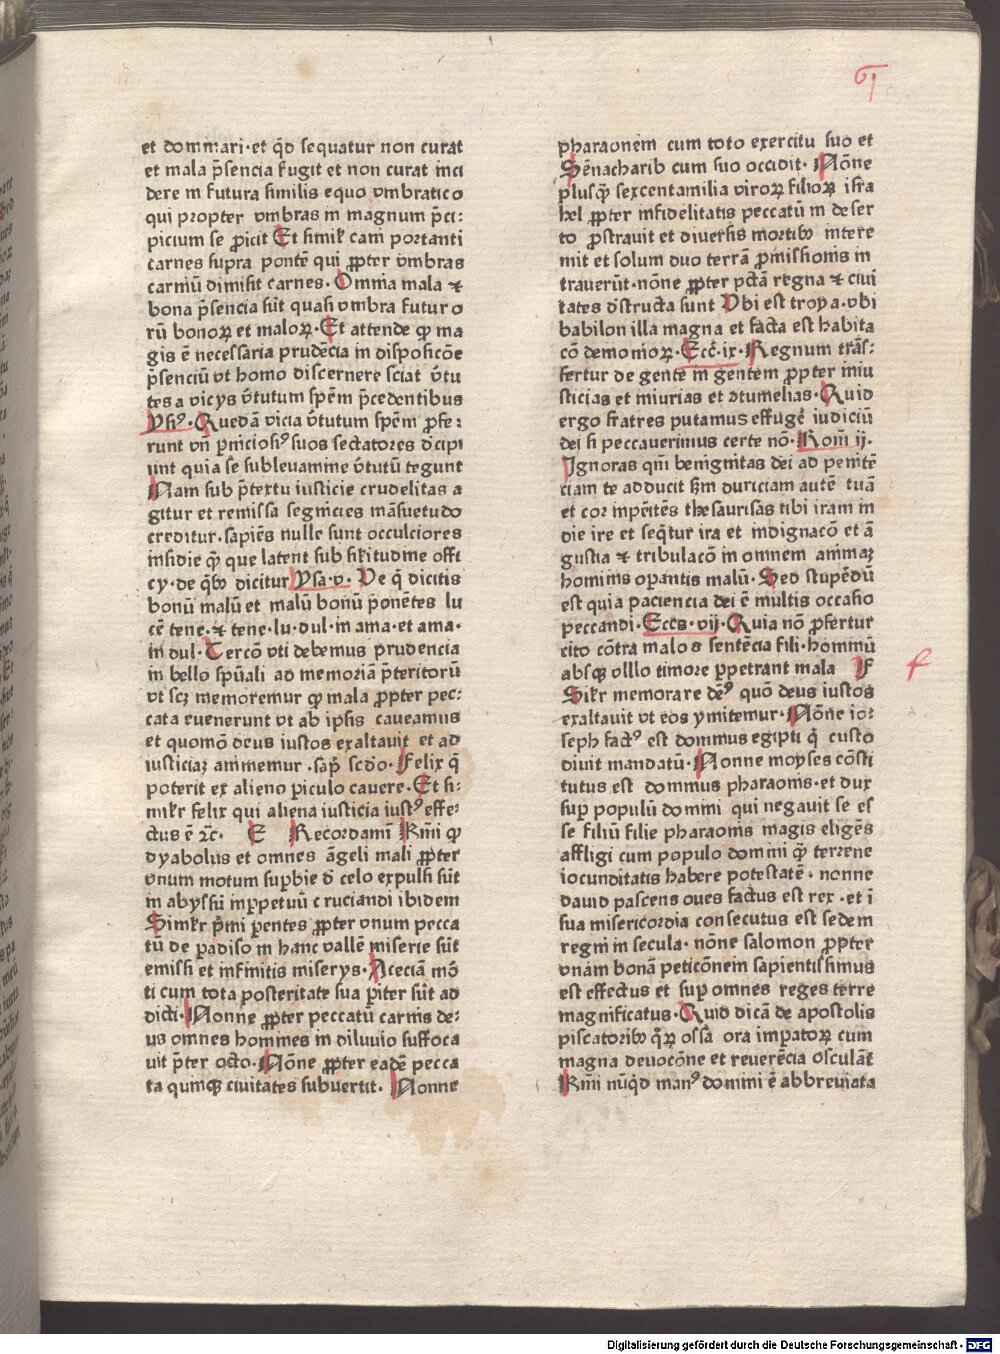 61
et dominari·et q̄d sequatur non curat
et mala p̄sencia fugit et non curat inci
dere in futura similis equo vmbratico
qui propter vmbras in magnum p̄ci:
picium se ꝓicit Et simil̛ cani portanti
carnes supra pontē qui ꝓpter vmbras
carniū dimisit carnes·Omnia mala ⁊
bona p̄sencia sūt quasi vmbra futuro
rū bonoꝝ et maloꝝ·Et attende ꝙ ma
gis ē necessaria prudēcia in disposicōe
p̄senciū vt homo discernere sciat v̄tu
tes a vicys v̄tutum spēm p̄cedentibus
Ysiꝰ·Quedā vicia v̄tutum spēm p̄fe:
runt vn̄ p̄niciosiꝰ suos sectatores d̄cipi
unt quia se subleuamine v̄tutū tegunt
Nam sub p̄textu iusticie crudelitas a
gitur et remissa segnicies māsuetudo
creditur·sapiēs nulle sunt occulciores
insidie q̄ que latent sub sil̛itudine offi
cy·de qꝫ dicitur Ysa·v·Ve q̄ dicitis
bonū malū et malū bonū ponētes lu
cē tene·⁊ tene·lu·dul·in ama·et ama·
in dul·Tercō vti debemus prudencia
in bello spūali ad memoriā p̄teritorū
vt scꝫ memoremur ꝙ mala ꝓpter pec:
cata euenerunt vt ab ipsis caueamus
et quomō deus iustos exaltauit et ad
iusticiaꝫ animemur·sap̄ scdo·Felix q̄
poterit ex alieno ꝑiculo cauere·Et si:
milr̄ felix qui aliena iusticia iustꝰ effe:
ctus ē ⁊c̄· E Recordamī k̄mi ꝙ
dyabolus et omnes āgeli mali ꝓpter
vnum motum suꝑbie d̄ celo expulsi sūt
in abyssū inꝑpetuū cruciandi ibidem
Similr̄ p̄mi ꝑentes ꝓpter vnum pecca
tū de ꝑadiso in hanc vallē miserie sūt
emissi et infinitis miserys·Aceciā mō
ti cum tota posteritate sua ꝑiter sūt ad
dicti·Nonne ꝓpter peccatū carnis de:
us omnes homines in diluuio suffoca
uit p̄ter octo·Nōne ꝓpter eadē pecca
ta quinqꝫ ciuitates subuertit·Nonne
pharaonem cum toto exercitu suo et
Sēnacharib cum suo occidit·Nōne
plusq̄ sexcentamilia viroꝝ filioꝝ isra
hel ꝓpter infidelitatis peccatū in deser
to ꝓstrauit et diuersis mortibꝫ intere
mit et solum duo terrā ꝓmissionis in
trauerūt·nōne ꝓpter pctā regna ⁊ ciui
tates d̄structa sunt Vbi est troya·vbi
babilon illa magna et facta est habita
cō demonioꝝ·Eccī·ix·Regnum trās:
fertur de gente in gentem ꝓpter iniu
sticias et iniurias et ꝯtumelias·Quid
ergo fratres putamus effugē iudiciū
dei si peccauerimus certe nō·Rom̄ ij·
Ignoras qm̄ benignitas dei ad penitē
ciam te adducit scd̄m duriciam autē tuā
et cor inpēitēs thesaurisas tibi iram in
die ire et seq̄tur ira et indignacō et ā
gustia ⁊ tribulacō in omnem animaꝫ
hominis oꝑantis malū·Sed stupēdū
est quia paciencia dei ē multis occasio
peccandi·Eccs·vij·Quia nō ꝓfertur
cito cōtra malos sentēcia fili·hominū
absqꝫ vlllo timore ꝑpetrant mala F
f
Silr̄ memorare deꝰ quō deus iustos
exaltauit vt eos ymitemur·Nōne io:
seph factꝰ est dominus egipti q̄ custo
diuit mandatū·Nonne moyses cōsti
tutus est dominus pharaonis·et dux
suꝑ populū domini qui negauit se es
se filiū filie pharaonis magis eligēs
affligi cum populo domini q̄ terrene
iocunditatis habere potestatē·nonne
dauid pascens oues factus est rex·et ī
sua misericordia consecutus est sedem
regni in secula·nōne salomon ꝓpter
vnam bonā peticōnem sapientissimus
est effectus et suꝑ omnes reges terre
magnificatus·Quid dicā de apostolis
piscatoribꝫ qꝝ ossa ora imꝑatoꝝ cum
magna deuocōne et reuerēcia osculāt̄
K̄mi nūq̄d manꝰ domini ē abbreuiata
Digitalisierung gefördert durch die Deutsche Forschungsgemeinschaft - DFG